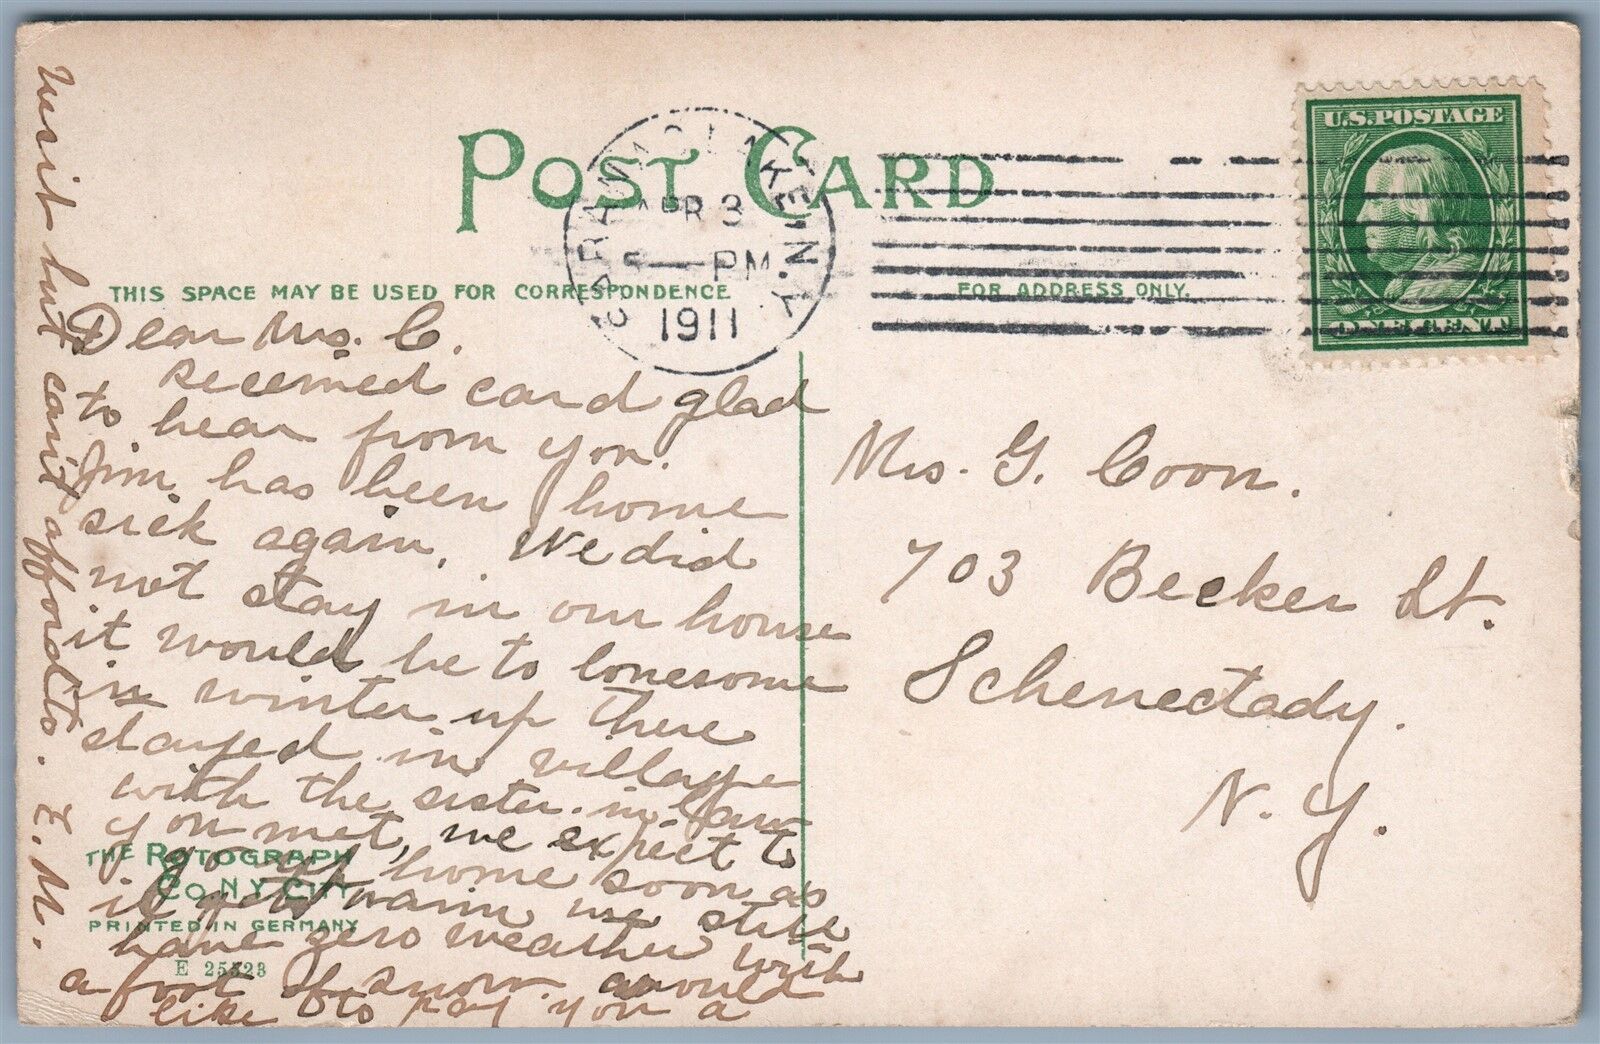 POST CARD
U.S. POSTAGE
ONE CENT
SARANAC LAKE, N.Y.
APR 3
PM
1911
THIS SPACE MAY BE USED FOR CORRESPONDENCE
FOR ADDRESS ONLY.
Dear Mrs. C.
Received card glad
to hear from you.
Jim has been home
sick again. We did
not stay in our house
it would be to lonesome
in winter up there
stayed in village
with the sister-in-law
you met, we expect to
go up home soon as
it gets warm we still
have zero weather with
a foot of snow. would
like to pay you a
visit but can't afford to. E. M.
Mrs. G. Coon.
703 Becker St.
Schenectady.
N. Y.
THE ROTOGRAPH
CO N.Y. CITY
PRINTED IN GERMANY
E 25323